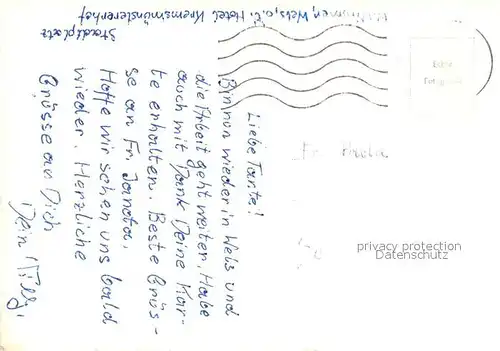 Liebe Tante!
Bin nun wieder in Wels und
die Arbeit geht weiter. Habe
auch mit Dank Deine Kar-
te erhalten. Beste Grüs-
se an Fr. Janota.
Hoffe wir sehen uns bald
wieder. Herzliche
Grüsse an Dich
Dein Willy.
Wels, O.Ö. Hotel Kremsmünstererhof
Stadtplatz
Fr. Paula
privacy protection
Datenschutz